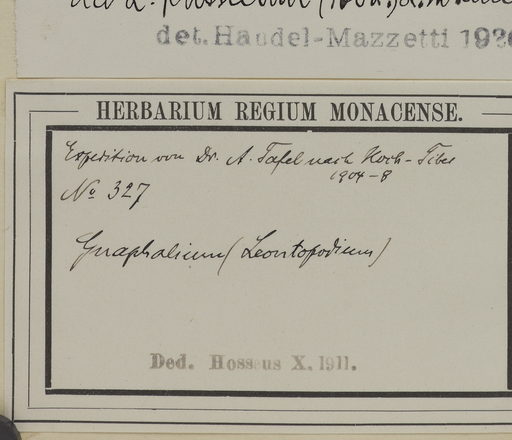 det. Handel-Mazzetti 193
HERBARIUM REGIUM MONACENSE.
Expedition von Dr. A. Tafel nach Hoch-Tibet
1904-8
No 327
Gnaphalium (Leontopodium)
Ded. Hosseus X. 1911.